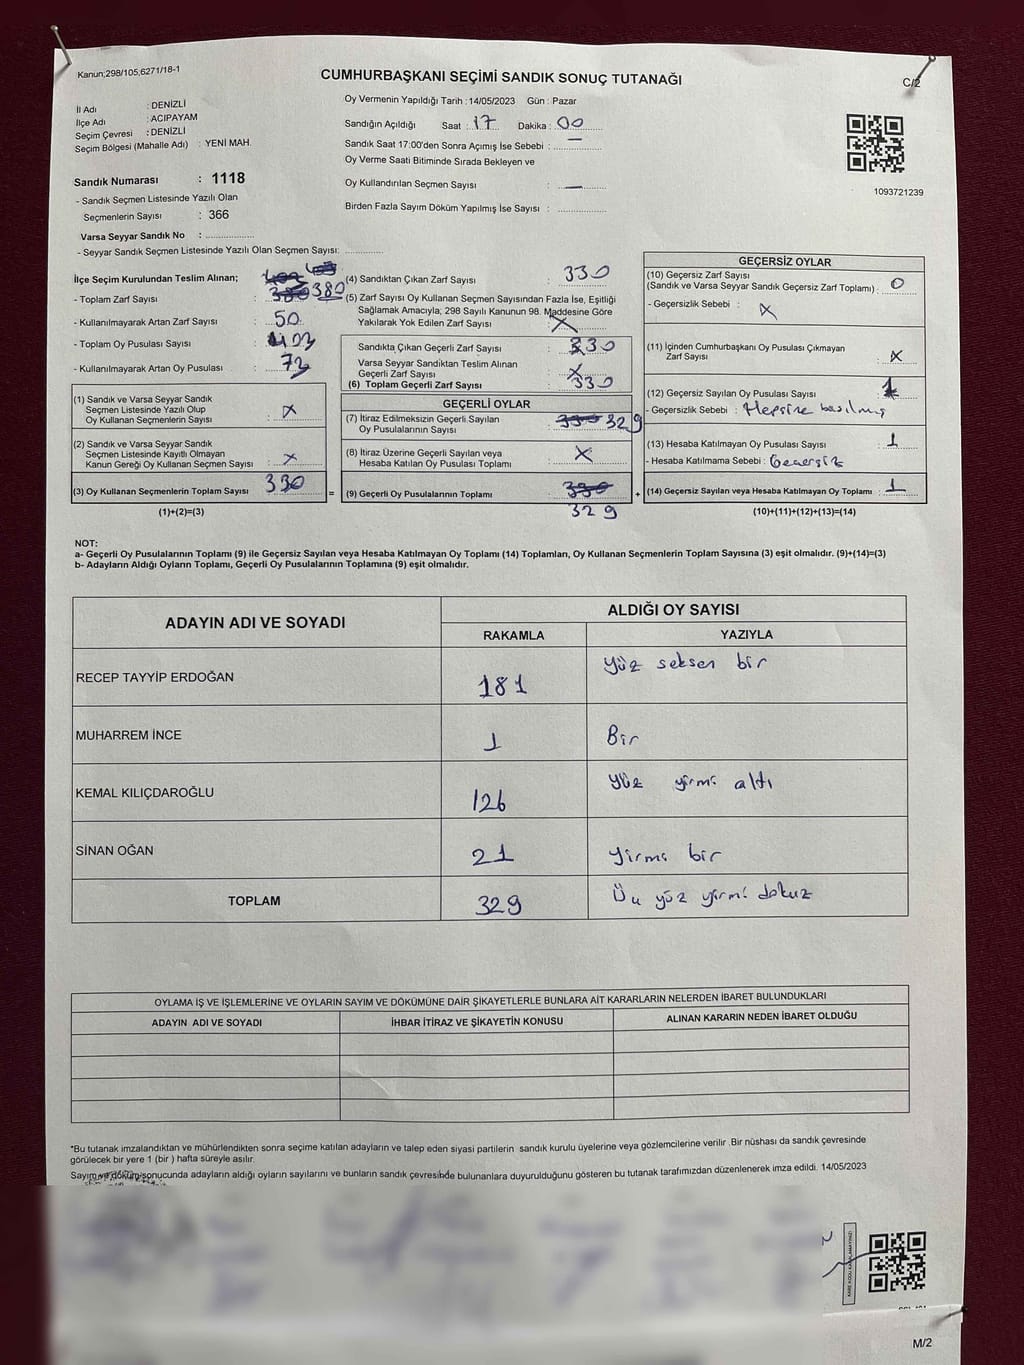 Kanun;298/105;6271/18-1
CUMHURBAŞKANI SEÇİMİ SANDIK SONUÇ TUTANAĞI
C/2
İl Adı : DENİZLİ
İlçe Adı : ACIPAYAM
Seçim Çevresi : DENİZLİ
Seçim Bölgesi (Mahalle Adı) : YENİ MAH.
Sandık Numarası : 1118
- Sandık Seçmen Listesinde Yazılı Olan
Seçmenlerin Sayısı : 366
Varsa Seyyar Sandık No :
- Seyyar Sandık Seçmen Listesinde Yazılı Olan Seçmen Sayısı:
Oy Vermenin Yapıldığı Tarih : 14/05/2023 Gün : Pazar
Sandığın Açıldığı Saat : 17 Dakika : 00
Sandık Saat 17:00'den Sonra Açımış İse Sebebi : —
Oy Verme Saati Bitiminde Sırada Bekleyen ve
Oy Kullandırılan Seçmen Sayısı : —
Birden Fazla Sayım Döküm Yapılmış İse Sayısı :
1093721239
İlçe Seçim Kurulundan Teslim Alınan;
- Toplam Zarf Sayısı : 380
- Kullanılmayarak Artan Zarf Sayısı : 50
- Toplam Oy Pusulası Sayısı : 403
- Kullanılmayarak Artan Oy Pusulası : 73
(1) Sandık ve Varsa Seyyar Sandık
Seçmen Listesinde Yazılı Olup
Oy Kullanan Seçmenlerin Sayısı : X
(2) Sandık ve Varsa Seyyar Sandık
Seçmen Listesinde Kayıtlı Olmayan
Kanun Gereği Oy Kullanan Seçmen Sayısı : X
(3) Oy Kullanan Seçmenlerin Toplam Sayısı : 330
(1)+(2)=(3)
=
(4) Sandıktan Çıkan Zarf Sayısı : 330
(5) Zarf Sayısı Oy Kullanan Seçmen Sayısından Fazla İse, Eşitliği
Sağlamak Amacıyla; 298 Sayılı Kanunun 98. Maddesine Göre
Yakılarak Yok Edilen Zarf Sayısı : X
Sandıkta Çıkan Geçerli Zarf Sayısı : 330
Varsa Seyyar Sandıktan Teslim Alınan
Geçerli Zarf Sayısı : X
(6) Toplam Geçerli Zarf Sayısı : 330
GEÇERLİ OYLAR
(7) İtiraz Edilmeksizin Geçerli Sayılan
Oy Pusulalarının Sayısı : 330 329
(8) İtiraz Üzerine Geçerli Sayılan veya
Hesaba Katılan Oy Pusulası Toplamı : X
(9) Geçerli Oy Pusulalarının Toplamı : 330
329
+
GEÇERSİZ OYLAR
(10) Geçersiz Zarf Sayısı
(Sandık ve Varsa Seyyar Sandık Geçersiz Zarf Toplamı) : 0
- Geçersizlik Sebebi : X
(11) İçinden Cumhurbaşkanı Oy Pusulası Çıkmayan
Zarf Sayısı : X
(12) Geçersiz Sayılan Oy Pusulası Sayısı : 1
- Geçersizlik Sebebi : Hepsine basılmış
(13) Hesaba Katılmayan Oy Pusulası Sayısı : 1
- Hesaba Katılmama Sebebi : Geçersiz
(14) Geçersiz Sayılan veya Hesaba Katılmayan Oy Toplamı : 1
(10)+(11)+(12)+(13)=(14)
NOT:
a- Geçerli Oy Pusulalarının Toplamı (9) ile Geçersiz Sayılan veya Hesaba Katılmayan Oy Toplamı (14) Toplamları, Oy Kullanan Seçmenlerin Toplam Sayısına (3) eşit olmalıdır. (9)+(14)=(3)
b- Adayların Aldığı Oyların Toplamı, Geçerli Oy Pusulalarının Toplamına (9) eşit olmalıdır.
ADAYIN ADI VE SOYADI
ALDIĞI OY SAYISI
RAKAMLA YAZIYLA
RECEP TAYYİP ERDOĞAN 181 Yüz seksen bir
MUHARREM İNCE 1 Bir
KEMAL KILIÇDAROĞLU 126 Yüz yirmi altı
SİNAN OĞAN 21 Yirmi bir
TOPLAM 329 Üç yüz yirmi dokuz
OYLAMA İŞ VE İŞLEMLERİNE VE OYLARIN SAYIM VE DÖKÜMÜNE DAİR ŞİKAYETLERLE BUNLARA AİT KARARLARIN NELERDEN İBARET BULUNDUKLARI
ADAYIN ADI VE SOYADI İHBAR İTİRAZ VE ŞİKAYETİN KONUSU ALINAN KARARIN NEDEN İBARET OLDUĞU
*Bu tutanak imzalandıktan ve mühürlendikten sonra seçime katılan adayların ve talep eden siyasi partilerin sandık kurulu üyelerine veya gözlemcilerine verilir .Bir nüshası da sandık çevresinde
görülecek bir yere 1 (bir ) hafta süreyle asılır.
Sayım ve döküm sonucunda adayların aldığı oyların sayılarını ve bunların sandık çevresinde bulunanlara duyurulduğunu gösteren bu tutanak tarafımızdan düzenlenerek imza edildi. 14/05/2023
M/2